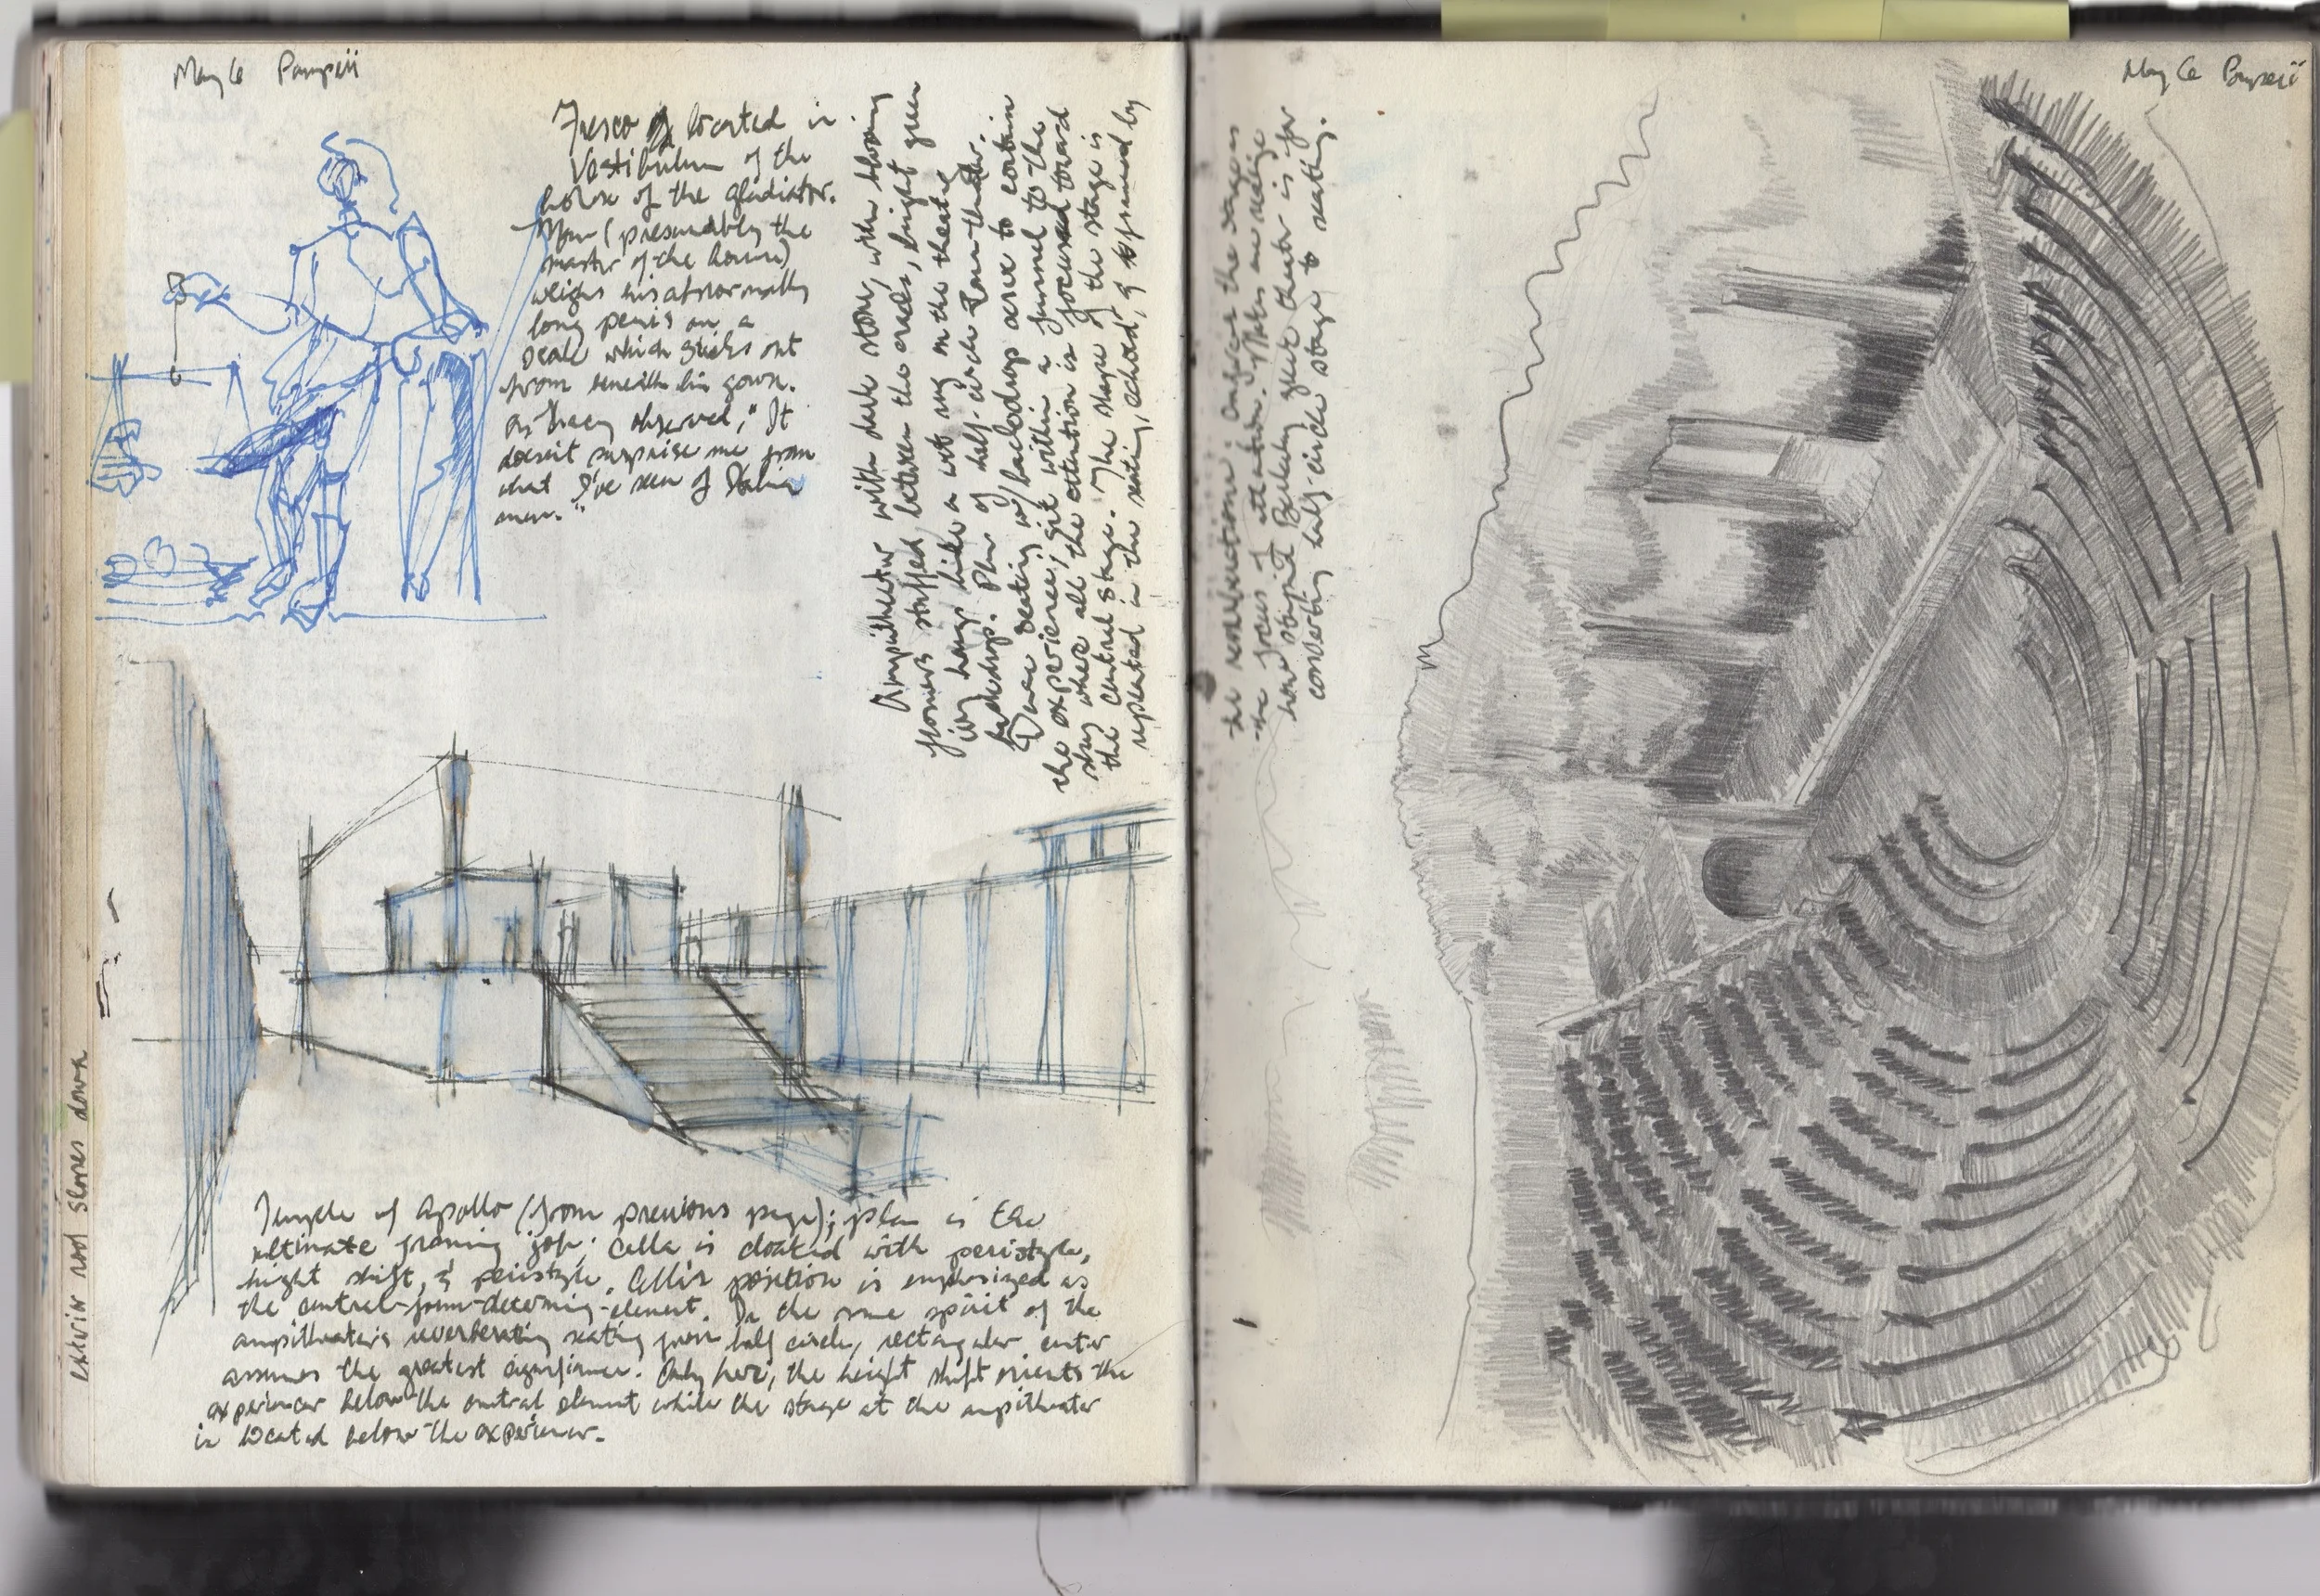 May 6 Pompeii
Fresco located in
Vestibulum of the
house of the gladiator.
Man (presumably the
master of the house)
weighs his abnormally
long penis on a
scale which sticks out
from beneath his gown.
As Tracy observed, "It
doesn't surprise me from
what I've seen of Italian
men."
Ampitheater with dark stone, with blooming
flowers stuffed between the cracks, bright green
ivy hangs like a wet rug on the theatre
backdrop. Plan of half-circle
seating w/ backdrop acres to contain
the experience; sit within a funnel to the
sky where all the attention is focused toward
the central stage. The shape of the stage is
repeated in the seating, echoed, & affirmed by
exterior roof slopes down
Temple of Apollo (from previous page); plan is the
ultimate framing job; Cella is cloaked with peristyle,
height shift, & peristyle. Cella's position is emphasized as
the central-form-determing-element. In the same spirit of the
ampitheater's reverberating seating from half circle, rectangular center
assumes the greatest significance. Only here, the height shift orients the
experiencer below the central element while the stage at the ampitheater
is located below the experiencer.
May 6 Pompeii
the stage is
the focus of attention. Makes me realize
how stupid Berkeley greek theater is for
converting half-circle stage to seating.